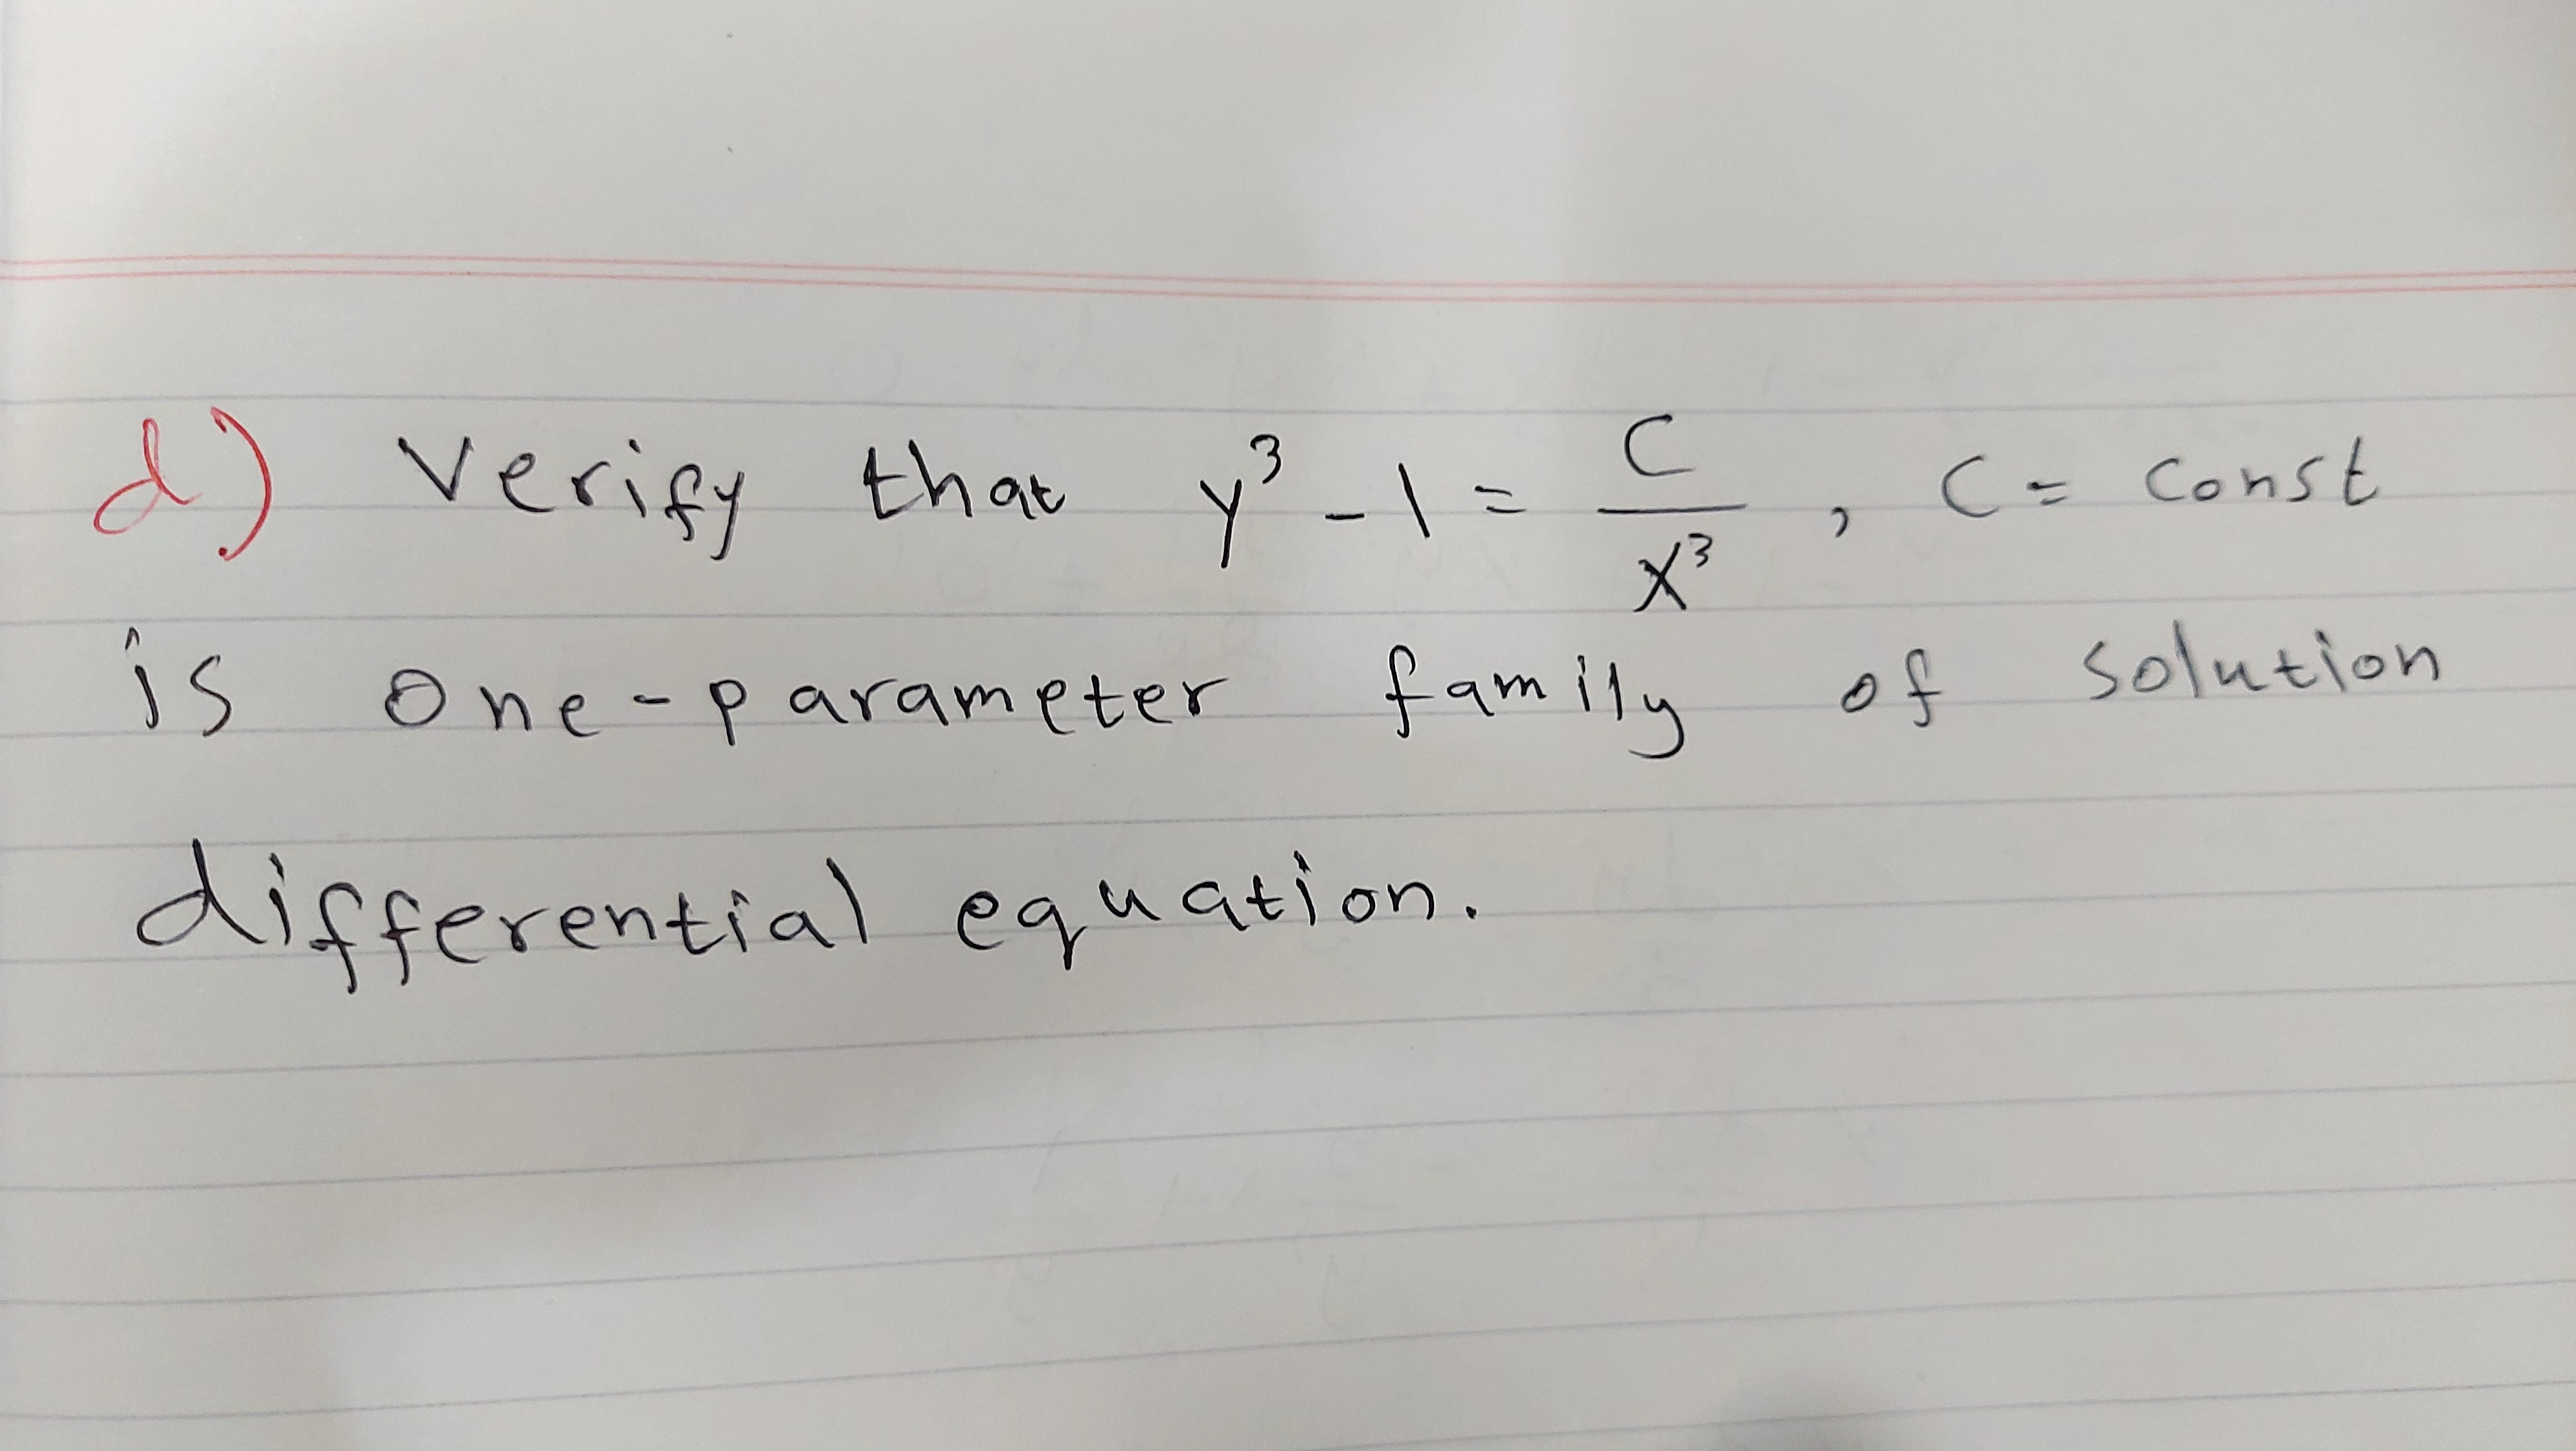 d) Verify that y³ - 1 = C/x³ , C = const
is one-parameter family of solution
differential equation.